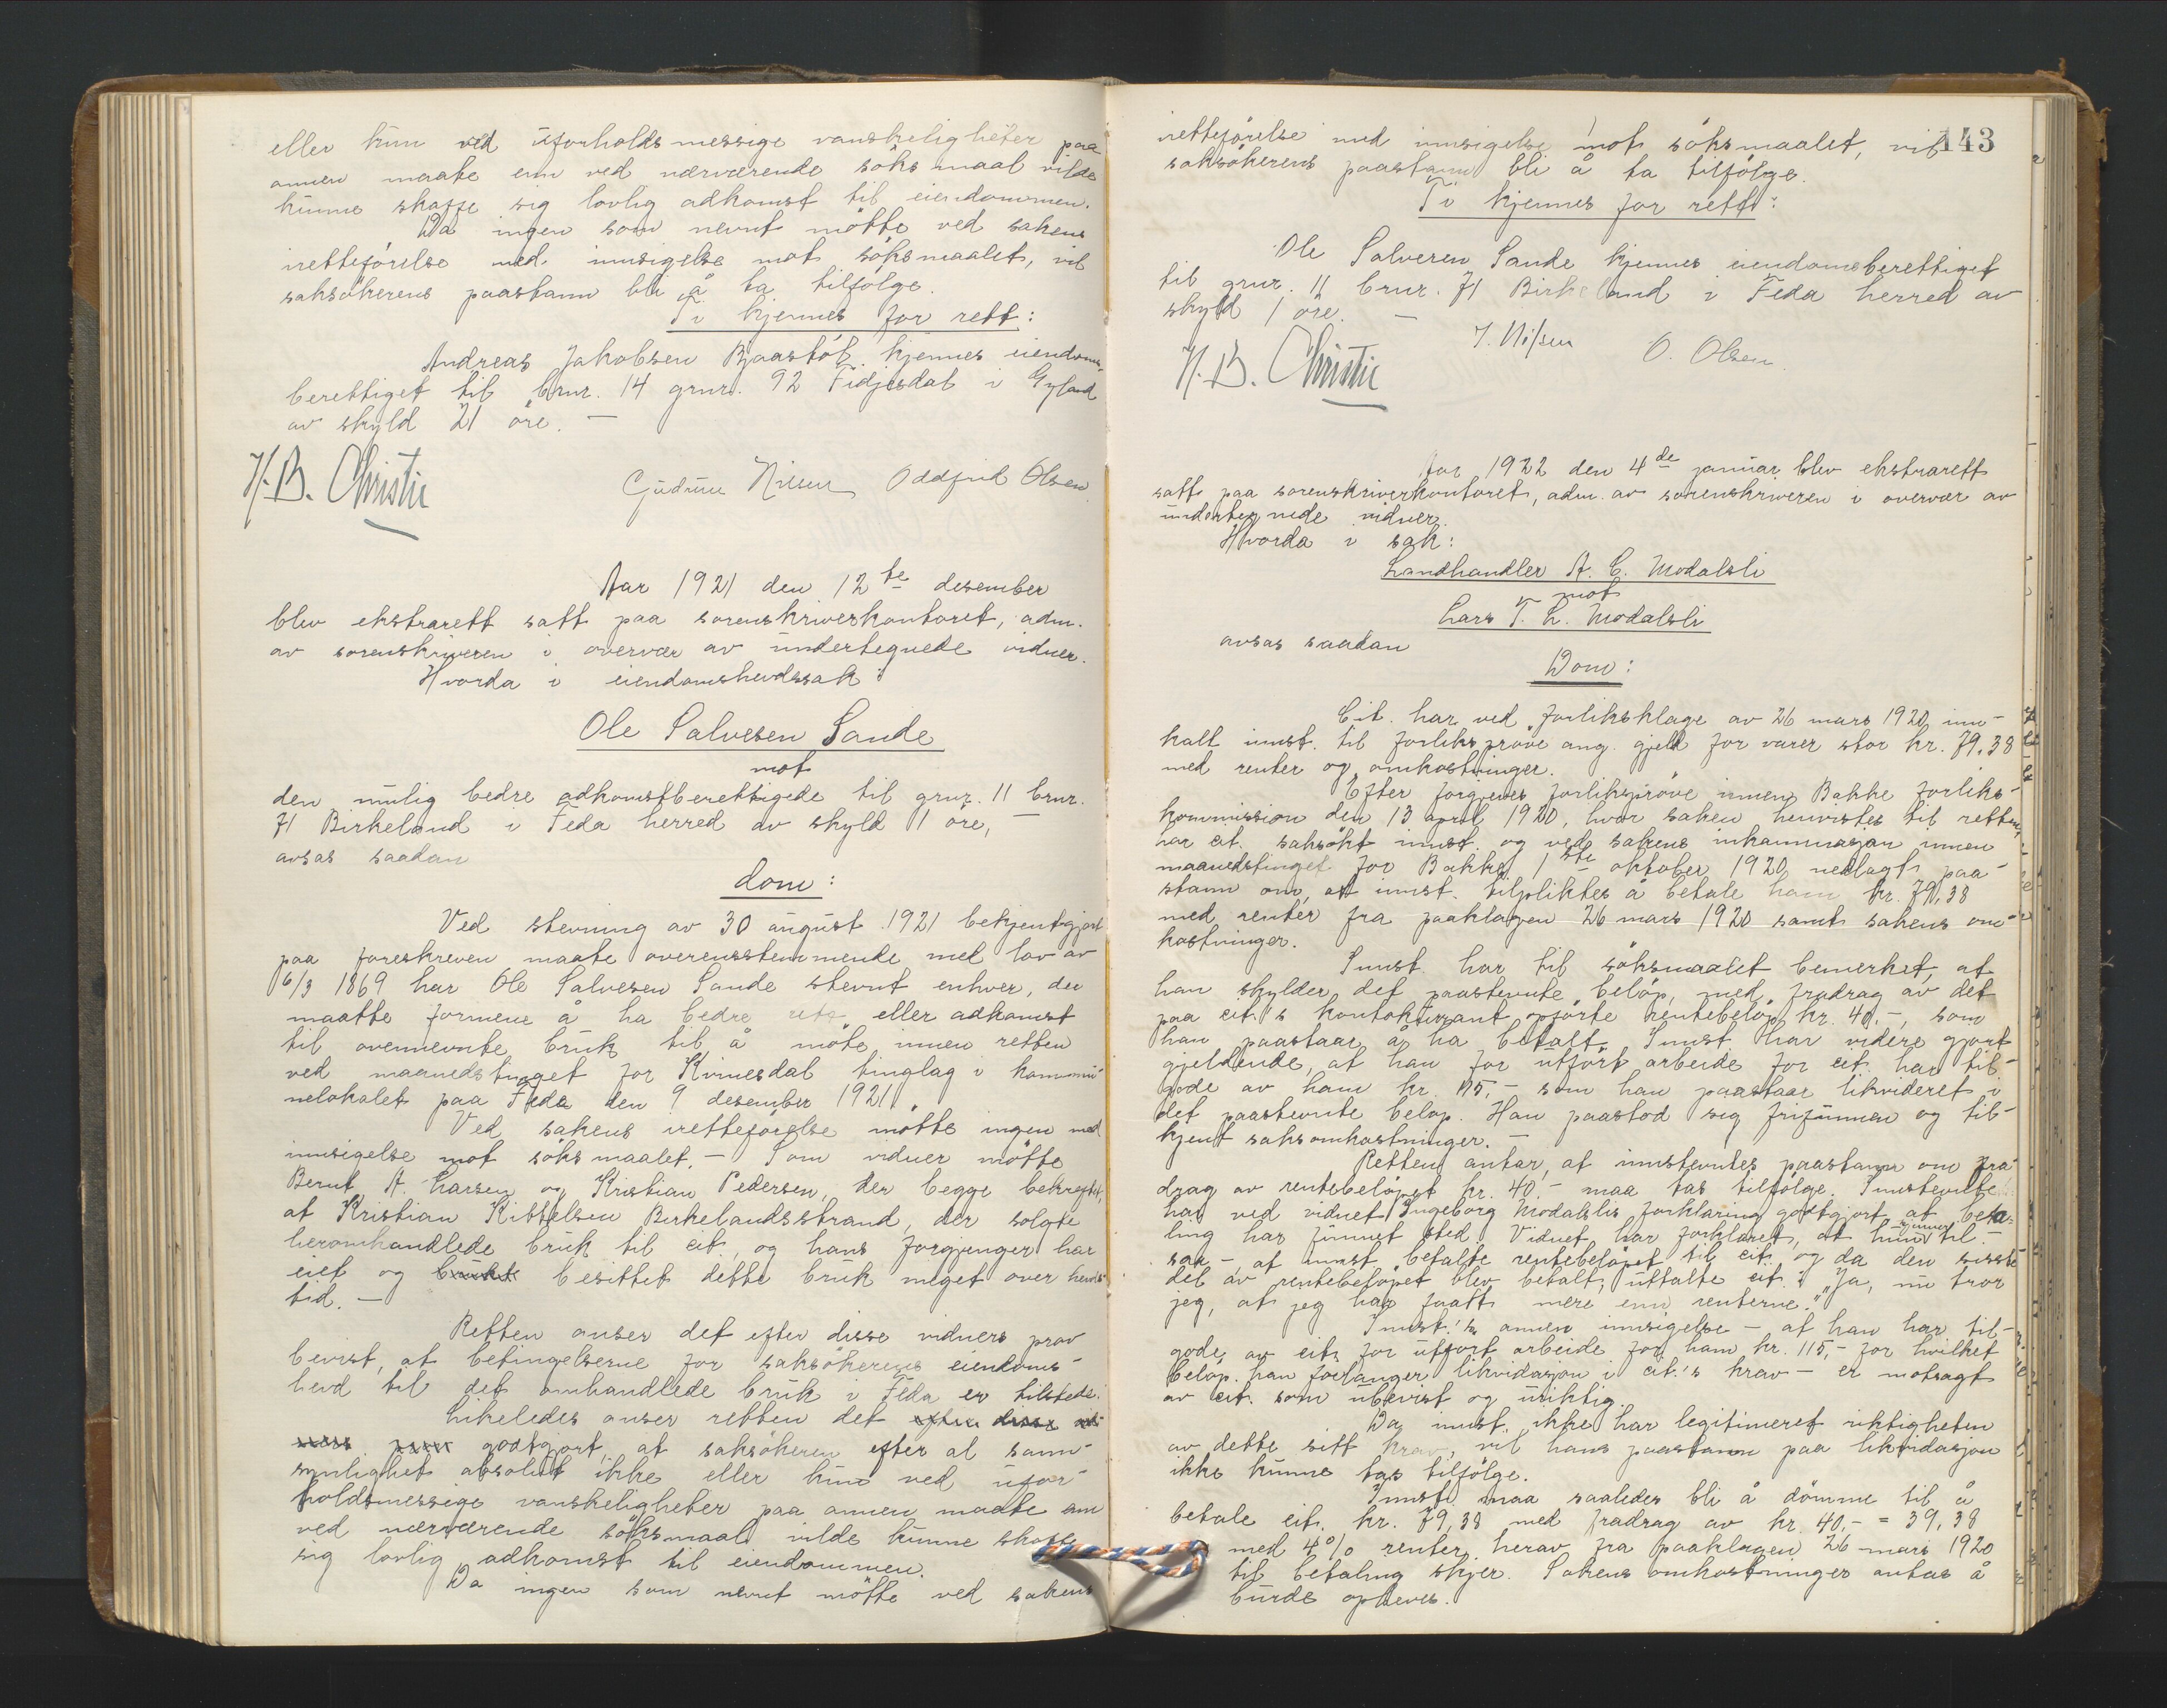 eller kun ved uforholdsmessige vanskeligheter paa
annen maate enn ved nærværende söksmaal vilde
kunne skaffe sig lovlig adkomst til eiendommen.
Da ingen som nevnt mötte ved sakens
iretteförelse med innsigelse mot söksmaalet, vil
saksökerens paastann bli å ta tilfölge.
Ti kjennes for rett:
Andreas Jakobsen Bjaastöl kjennes eiendoms-
berettiget til brnr. 14 grnr. 92 Fidjesdal i Gyland
av skyld 21 öre. —
H.B. Christie
Gudrun Nilsen Oddfrid Olsen
Aar 1921 den 12te desember
blev ekstrarett satt paa sorenskriverkontoret, adm.
av sorenskriveren i overvær av undertegnede vidner.
Hvorda i eiendomshevdssak:
Ole Salvesen Sande
mot
den mulig bedre adkomstberettigede til grnr. 11 brnr.
71 Birkeland i Feda herred av skyld 1 öre, —
avsas saadan
dom:
Ved stevning av 30 august 1921 bekjentgjort
paa foreskreven maate overensstemmende med lov av
16/3 1869 har Ole Salvesen Sande stevnt enhver, der
maatte formene å ha bedre rett eller adkomst
til ovennevnte bruk til å möte innen retten
ved maanedstinget for Kvinesdal tinglag i kommu-
nelokalet paa Feda den 9 desember 1921.
Ved sakens iretteförelse mötte ingen med
innsigelse mot söksmaalet. — Som vidner mötte
Bernt A. Larsen og Kristian Pedersen, der begge bekreftet,
at Kristian Kittelsen Birkelandsstrand, der solgte
heromhandlede bruk til cit., og hans forgjenger har
eiet og brukt besittet dette bruk meget over hevds
tid. —
Retten anser det efter disse vidners prov
bevist, at betingelserne for saksökerens eiendoms-
hevd til det omhandlede bruk i Feda er tilstede.
Likeledes anser retten det efter disse vid-
ners prov godtgjort, at saksökeren efter al sann-
synlighet absolut ikke eller kun ved ufor-
holdsmessige vanskeligheter paa annen maate enn
ved nærværende söksmaal vilde kunne skaffe
sig lovlig adkomst til eiendommen.
Da ingen som nevnt mötte ved sakens
143
iretteförelse med innsigelse mot söksmaalet, vil
saksökerens paastann bli å ta tilfölge.
Ti kjennes for rett:
Ole Salvesen Sande kjennes eiendomsberettiget
til grnr. 11 brnr. 71 Birkeland i Feda herred av
skyld 1 öre. —
H.B. Christie
J. Nilsen O. Olsen
Aar 1922 den 4de januar blev ekstrarett
satt paa sorenskriverkontoret, adm. av sorenskriveren i overvær av
undertegnede vidner.
Hvorda i sak:
Landhandler A. C. Modalsli
mot
Lars T. L. Modalsli
avsas saadan
Dom:
Cit. har ved forliksklage av 26 mars 1920 inn-
kalt innst. til forlikspröve ang. gjeld for varer stor kr. 79,38
med renter og omkostninger.
Efter forgjeves forlikspröve innen Bakke forliks-
kommission den 13 april 1920, hvor saken henvistes til retten,
har cit. saksökt innst. og ved sakens inkaminasjon innen
maanedstinget for Bakke 1ste oktober 1920 nedlagt paa-
stann om, at innst. tilpliktes å betale ham kr. 79,38
med renter fra paaklagen 26 mars 1920 samt sakens om-
kostninger.
Innst. har til söksmaalet bemerket, at
han skylder det paastevnte belöp, med fradrag av det
paa cit.'s kontokurrant opförte rentebelöp kr. 40.-, som
han paastaar å ha betalt. Innst. har videre gjort
gjeldende, at han for utfört arbeide for cit. har til-
gode av ham kr. 115,- som han paastaar likvideret i
det paastevnte belöp. Han paastod sig frifunnen og til-
kjent saksomkostninger. —
Retten antar, at innstevntes paastann om fra-
drag av rentebelöpet kr. 40.- maa tas tilfölge. Innstevnte
har ved vidnet Ingeborg Modalslis forklaring godtgjort at beta-
ling har funnet sted. Vidnet har forklaret, at hun til-
saa -, at innst. betalte rentebelöpet til cit. og da den sisste
del av rentebelöpet blev betalt, uttalte cit.: "Ja, nu tror
jeg, at jeg har faatt mere enn renterne."
Innst.'s annen innsigelse - at han har til-
gode av cit. for utfört arbeide for ham kr. 115,- for hvilket
belöp han forlanger likvidasjon i cit.'s krav - er motsagt
av cit. som ubevist og uriktig.
Da innst. ikke har legitimeret riktigheten
av dette sitt krav, vil hans paastann paa likvidasjon
ikke kunne tas tilfölge.
Innst. maa saaledes bli å dömme til å
betale cit. kr. 79,38 med fradrag av kr. 40.- = 39,38
med 4% renter herav fra paaklagen 26 mars 1920
til betaling skjer. Sakens omkostninger antas å
burde opheves.